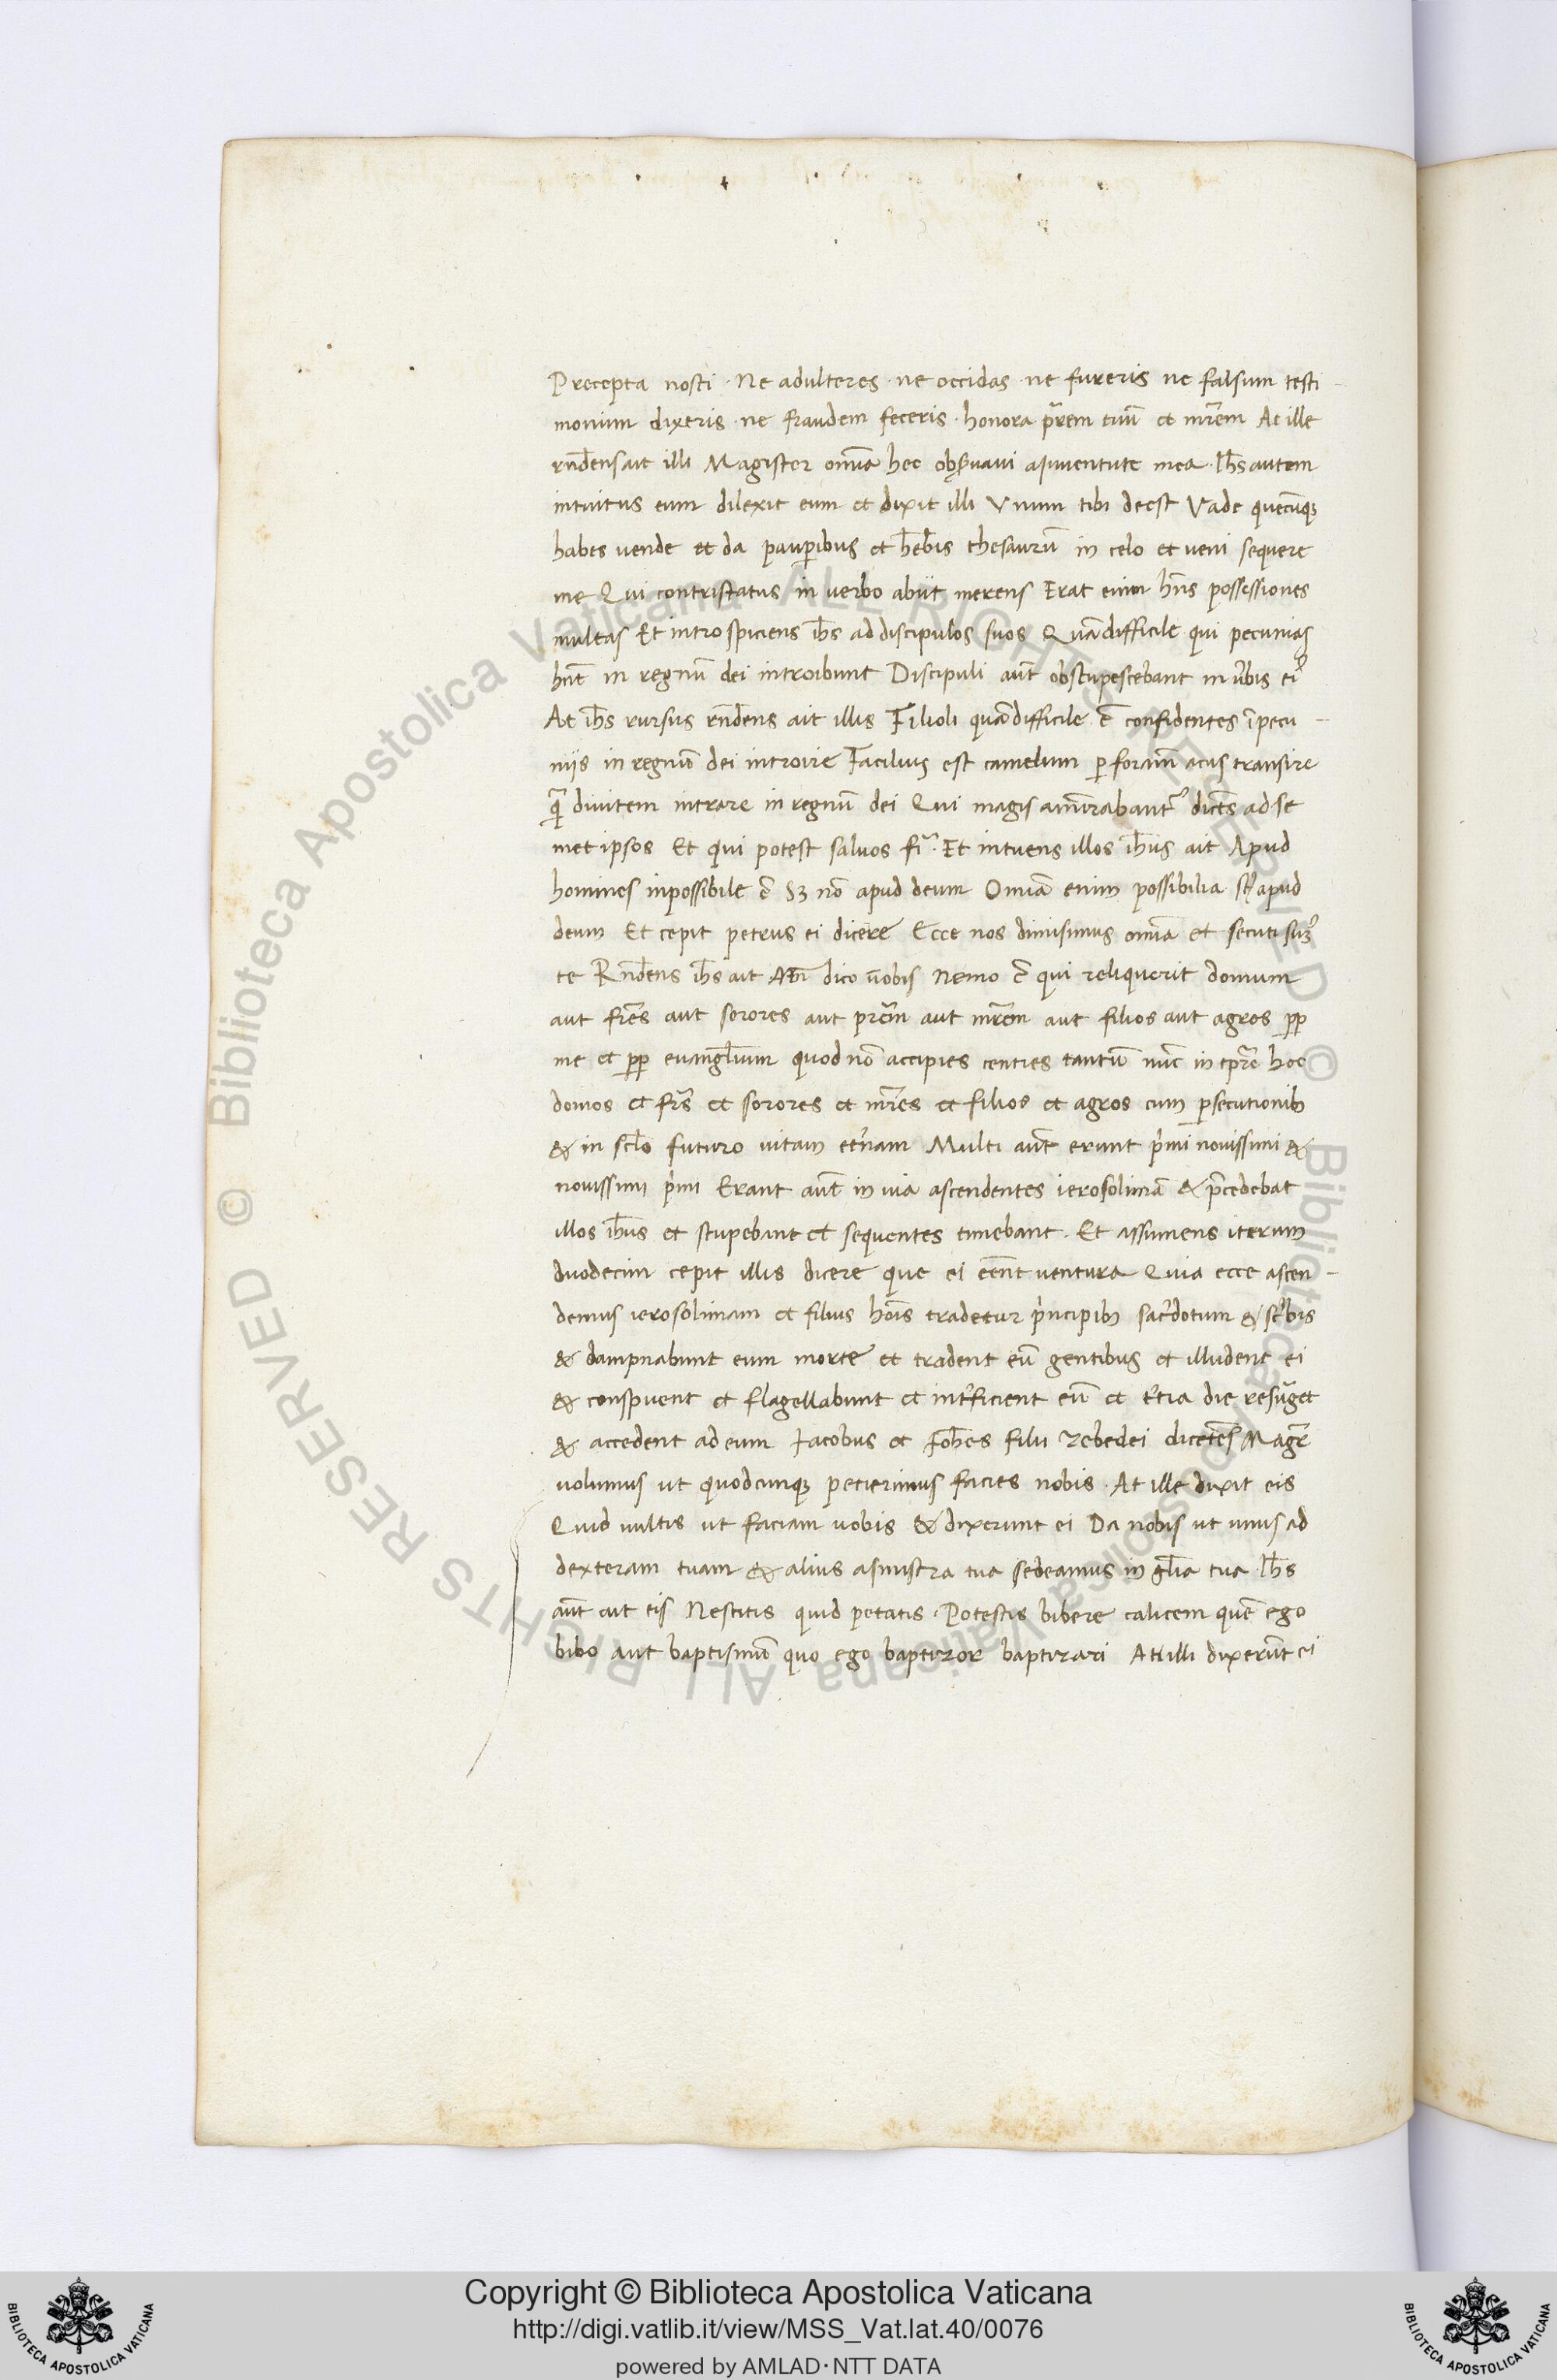 Precepta nosti · Ne adulteres · ne occidas · ne fureris ne falsum testi-
monium dixeris · ne fraudem feceris · honora pr̄em tuū et mr̄em At ille
rn̄dens ait illi Magister omīa hec obẜuaui aiuuentute mea · Ih̄s autem
intuitus eum dilexit eum et dixit illi Vnum tibi deest Vade quecūqꝫ
habes uende et da paup̄ibus et h̄ebis thesaurū in celo et ueni sequere
me Qui contristatus in uerbo abiit merens Erat enim hn̄s possessiones
multas Et introspiciens ih̄s ad discipulos suos Quādifficile qui pecunias
hn̄t in regnū dei introibunt Discipuli aūt obstupescebant in u̓bis ei᾽
At ih̄s rursus rn̄dens ait illis Filioli quādifficile ē confidentes ī pecu-
niis in regnū dei introire Facilius est camelum ꝑ foramē acus transire
q̄ diuitem intrare in regnū dei Qui magis amīrabant᾽ dicē̄s ad se
met ipsos Et qui potest saluos fi᾽ · Et intuens illos ih̄us ait Apud
homines inpossibile ē Sꝫ nō apud deum Omīa enim possibilia st̄ apud
deum Et cepit petrus ei dicere Ecce nos dimisimus omīa et secuti sum᾽
te Rn̄dens ih̄s ait Am̄ dico uobis Nemo ē qui reliquerit domum
aut fr̄es aut sorores aut pr̄em aut mr̄em aut filios aut agros ꝓp
me et ꝓp euangl̄ium quod nō accipies centies tantū nūc in tp̄re hoc
domos et fr̄s et sorores et mr̄es et filios et agros cum ꝑsecutionibꝫ
& in scl̄o futuro uitam et̓nam Multi aūt erunt p̓mi nouissimi &
nouissimi p̓mi Erant aūt in uia ascendentes ierosolimā & p̄cedebat
illos ih̄us et stupebant et sequentes timebant · Et assumens iterum
duodecim cepit illis dicere que ei eēnt uentura Quia ecce ascen-
demus ierosolimam et filius hōis tradetur p̓ncipibꝫ sac̓dotum & sc̓bis
& dampnabunt eum morte et tradent eū gentibus et illudent ei
& conspuent et flagellabunt et int̓ficient eū et t̓tia die resūget
& accedent ad eum Iacobus et Ioh̄es filii zebedei dicetē̄s Magr̄
uolumus ut quodcunqꝫ petierimus facies nobis · At ille dixit eis
Quid uultis ut faciam uobis & dixerunt ei Da nobis ut unus ad
dexteram tuam & alius asinistra tua sedeamus in gl̄ia tua Ih̄s
aūt ait eis Nescitis quid petatis · Potestis bibere calicem quē ego
bibo aut baptismū quo ego baptizor baptizari At illi dixerūt ei
Copyright © Biblioteca Apostolica Vaticana
http://digi.vatlib.it/view/MSS_Vat.lat.40/0076
powered by AMLAD·NTT DATA
BIBLIOTECA APOSTOLICA VATICANA
BIBLIOTECA APOSTOLICA VATICANA
© Biblioteca Apostolica Vaticana ALL RIGHTS RESERVED © Biblioteca Apostolica Vaticana ALL RIGHTS RESERVED